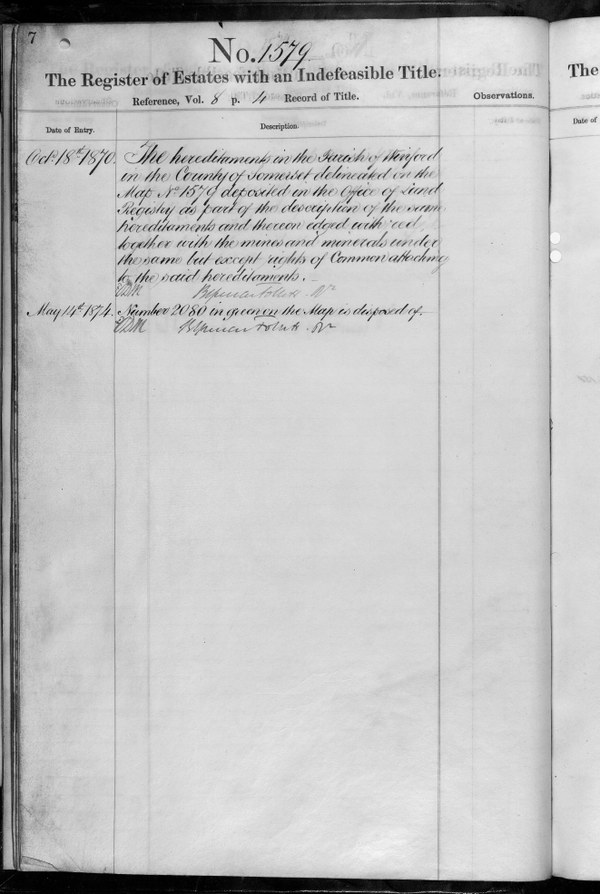 7
No. 1579
The Register of Estates with an Indefeasible Title.
Reference, Vol. 8 p. 4 Record of Title.
Observations.
Date of Entry.
Description.
Octr. 18th 1870. The hereditaments in the Parish of Winford
in the County of Somerset delineated on the
Map No 1579 deposited in the Office of Land
Registry as part of the description of the same
hereditaments and thereon edged with red,
together with the mines and minerals under
the same but except rights of Common attaching
to the said hereditaments.
May 14th 1874. Number 2080 in green on the Map is disposed of
The
Date of